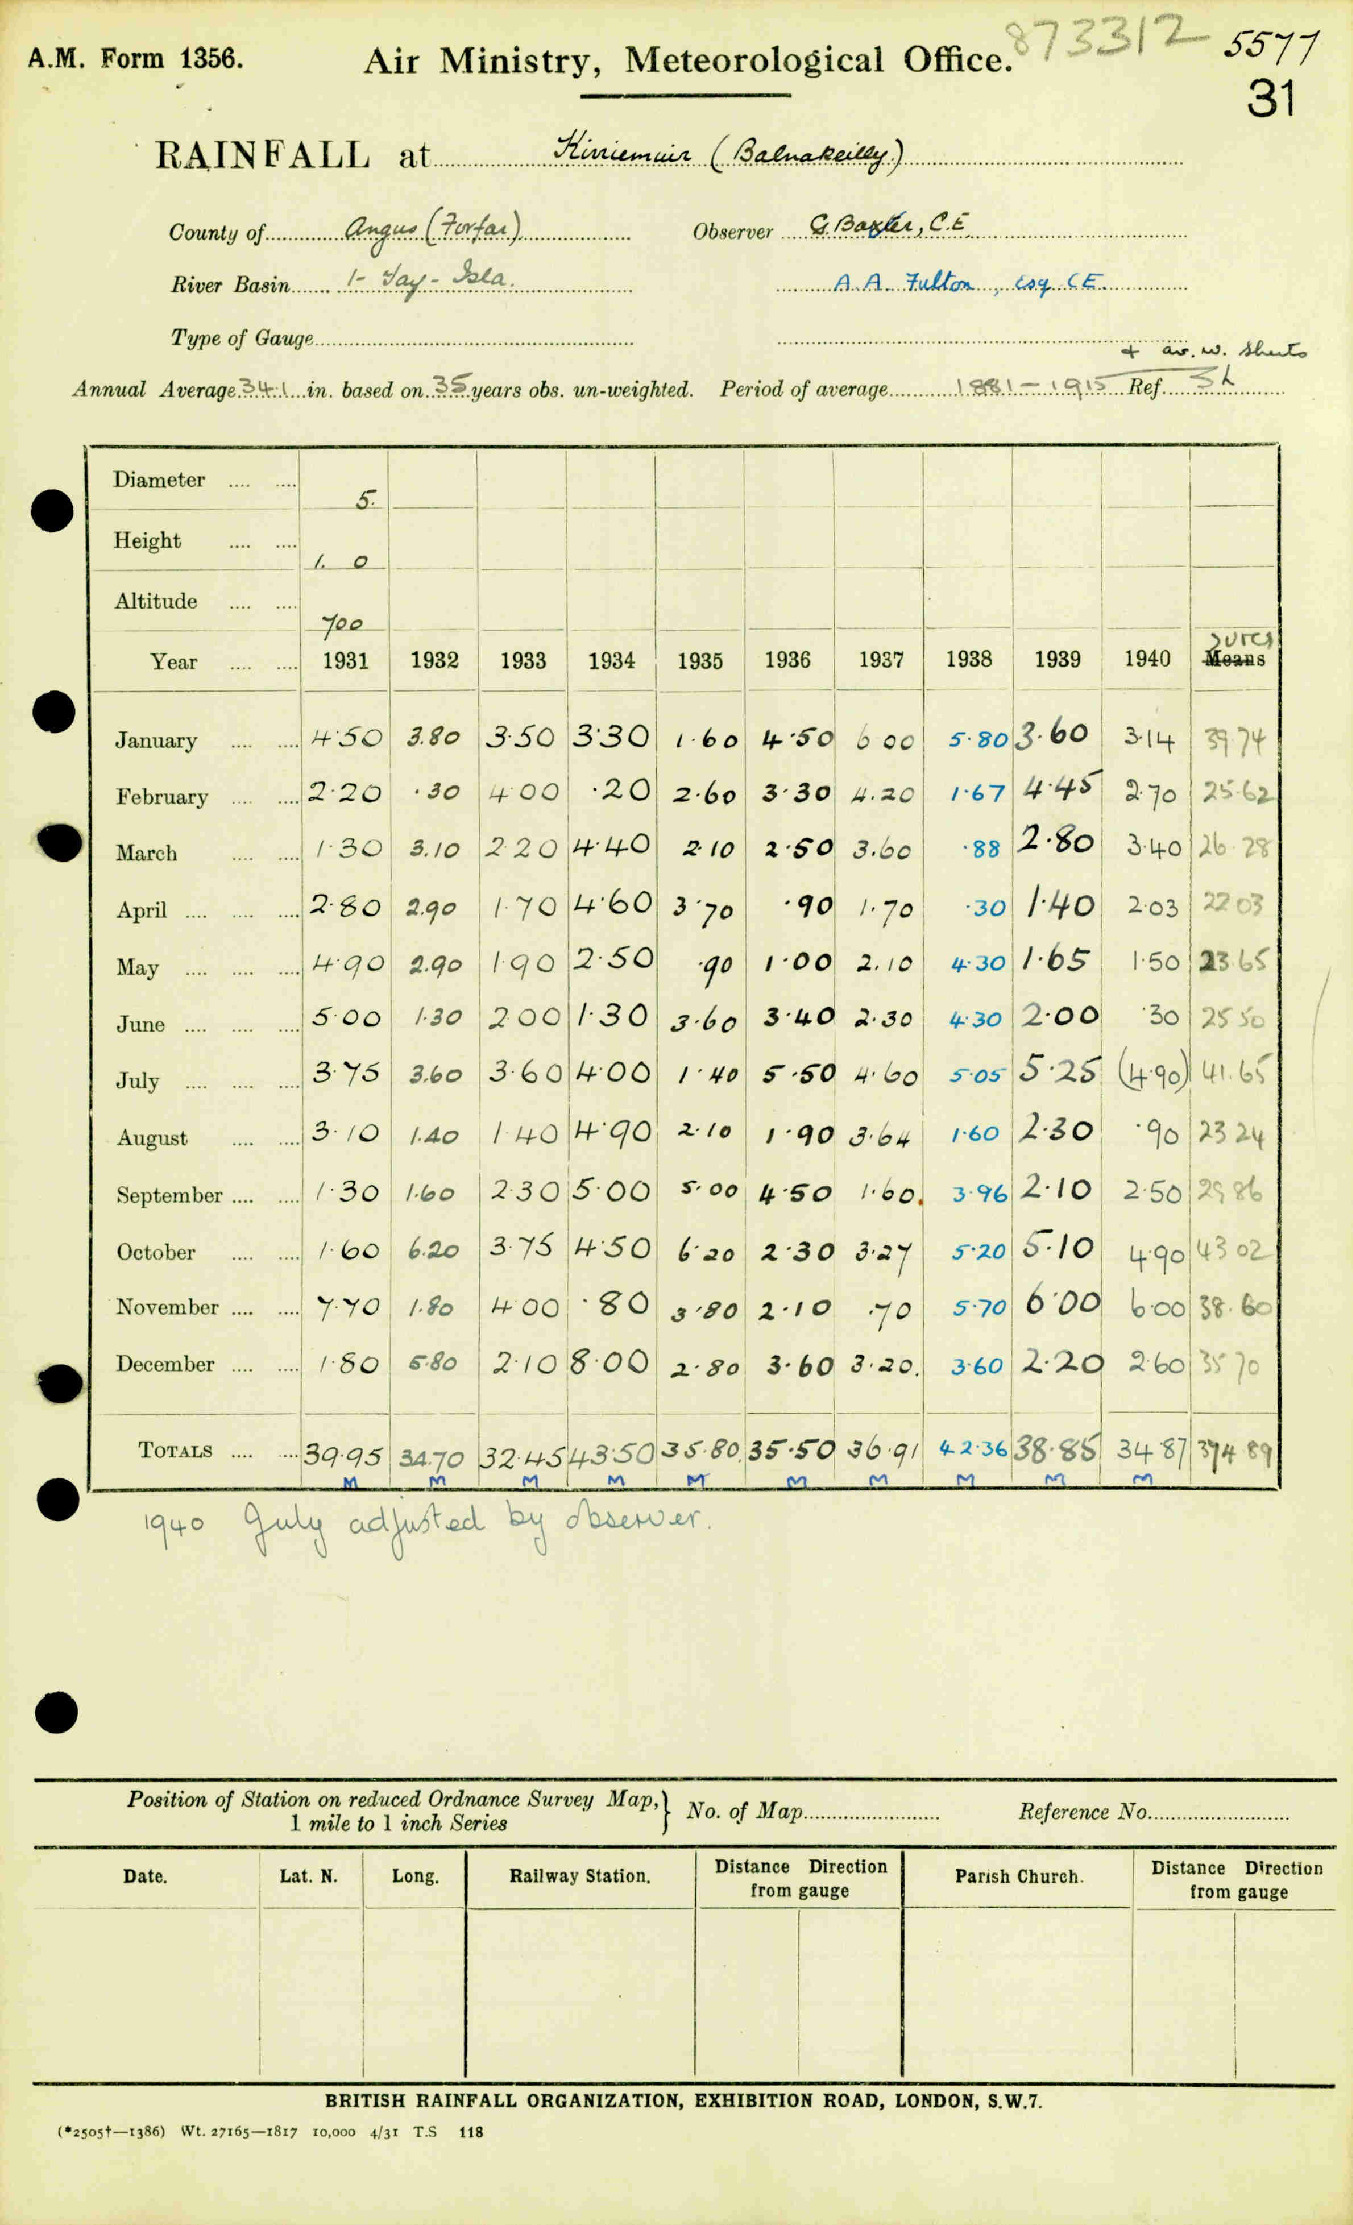 873312 5577
A.M. Form 1356. Air Ministry, Meteorological Office.
31
RAINFALL at Kirriemuir (Balnakeilly)
County of Angus (Forfar) Observer G. Baxter, C.E
River Basin 1- Tay - Isla. A. A. Fulton, Esq CE
Type of Gauge
+ av. w. sheets
Annual Average 34.1 in. based on 35 years obs. un-weighted. Period of average 1881-1915 Ref.
Diameter 5.
Height 1. 0
Altitude 700
Year 1931 1932 1933 1934 1935 1936 1937 1938 1939 1940 Means
January 4.50 3.80 3.50 3.30 1.60 4.50 6.00 5.80 3.60 3.14 39.74
February 2.20 .30 4.00 .20 2.60 3.30 4.20 1.67 4.45 2.70 25.62
March 1.30 3.10 2.20 4.40 2.10 2.50 3.60 .88 2.80 3.40 26.28
April 2.80 2.90 1.70 4.60 3.70 .90 1.70 .30 1.40 2.03 22.03
May 4.90 2.90 1.90 2.50 .90 1.00 2.10 4.30 1.65 1.50 23.65
June 5.00 1.30 2.00 1.30 3.60 3.40 2.30 4.30 2.00 .30 25.50
July 3.75 3.60 3.60 4.00 1.40 5.50 4.60 5.05 5.25 (4.90) 41.65
August 3.10 1.40 1.40 4.90 2.10 1.90 3.64 1.60 2.30 .90 23.24
September 1.30 1.60 2.30 5.00 5.00 4.50 1.60. 3.96 2.10 2.50 29.86
October 1.60 6.20 3.75 4.50 6.20 2.30 3.27 5.20 5.10 4.90 43.02
November 7.70 1.80 4.00 .80 3.80 2.10 .70 5.70 6.00 6.00 38.60
December 1.80 5.80 2.10 8.00 2.80 3.60 3.20. 3.60 2.20 2.60 35.70
TOTALS 39.95 34.70 32.45 43.50 35.80 35.50 36.91 42.36 38.85 34.87 374.89
M M M M M M M M M M
1940 July adjusted by observer.
Position of Station on reduced Ordnance Survey Map,} No. of Map Reference No.
1 mile to 1 inch Series
Date. Lat. N. Long. Railway Station. Distance Direction from gauge Parish Church. Distance Direction from gauge
BRITISH RAINFALL ORGANIZATION, EXHIBITION ROAD, LONDON, S.W.7.
(*2505†—1386) Wt. 27165—1817 10,000 4/31 T.S 118